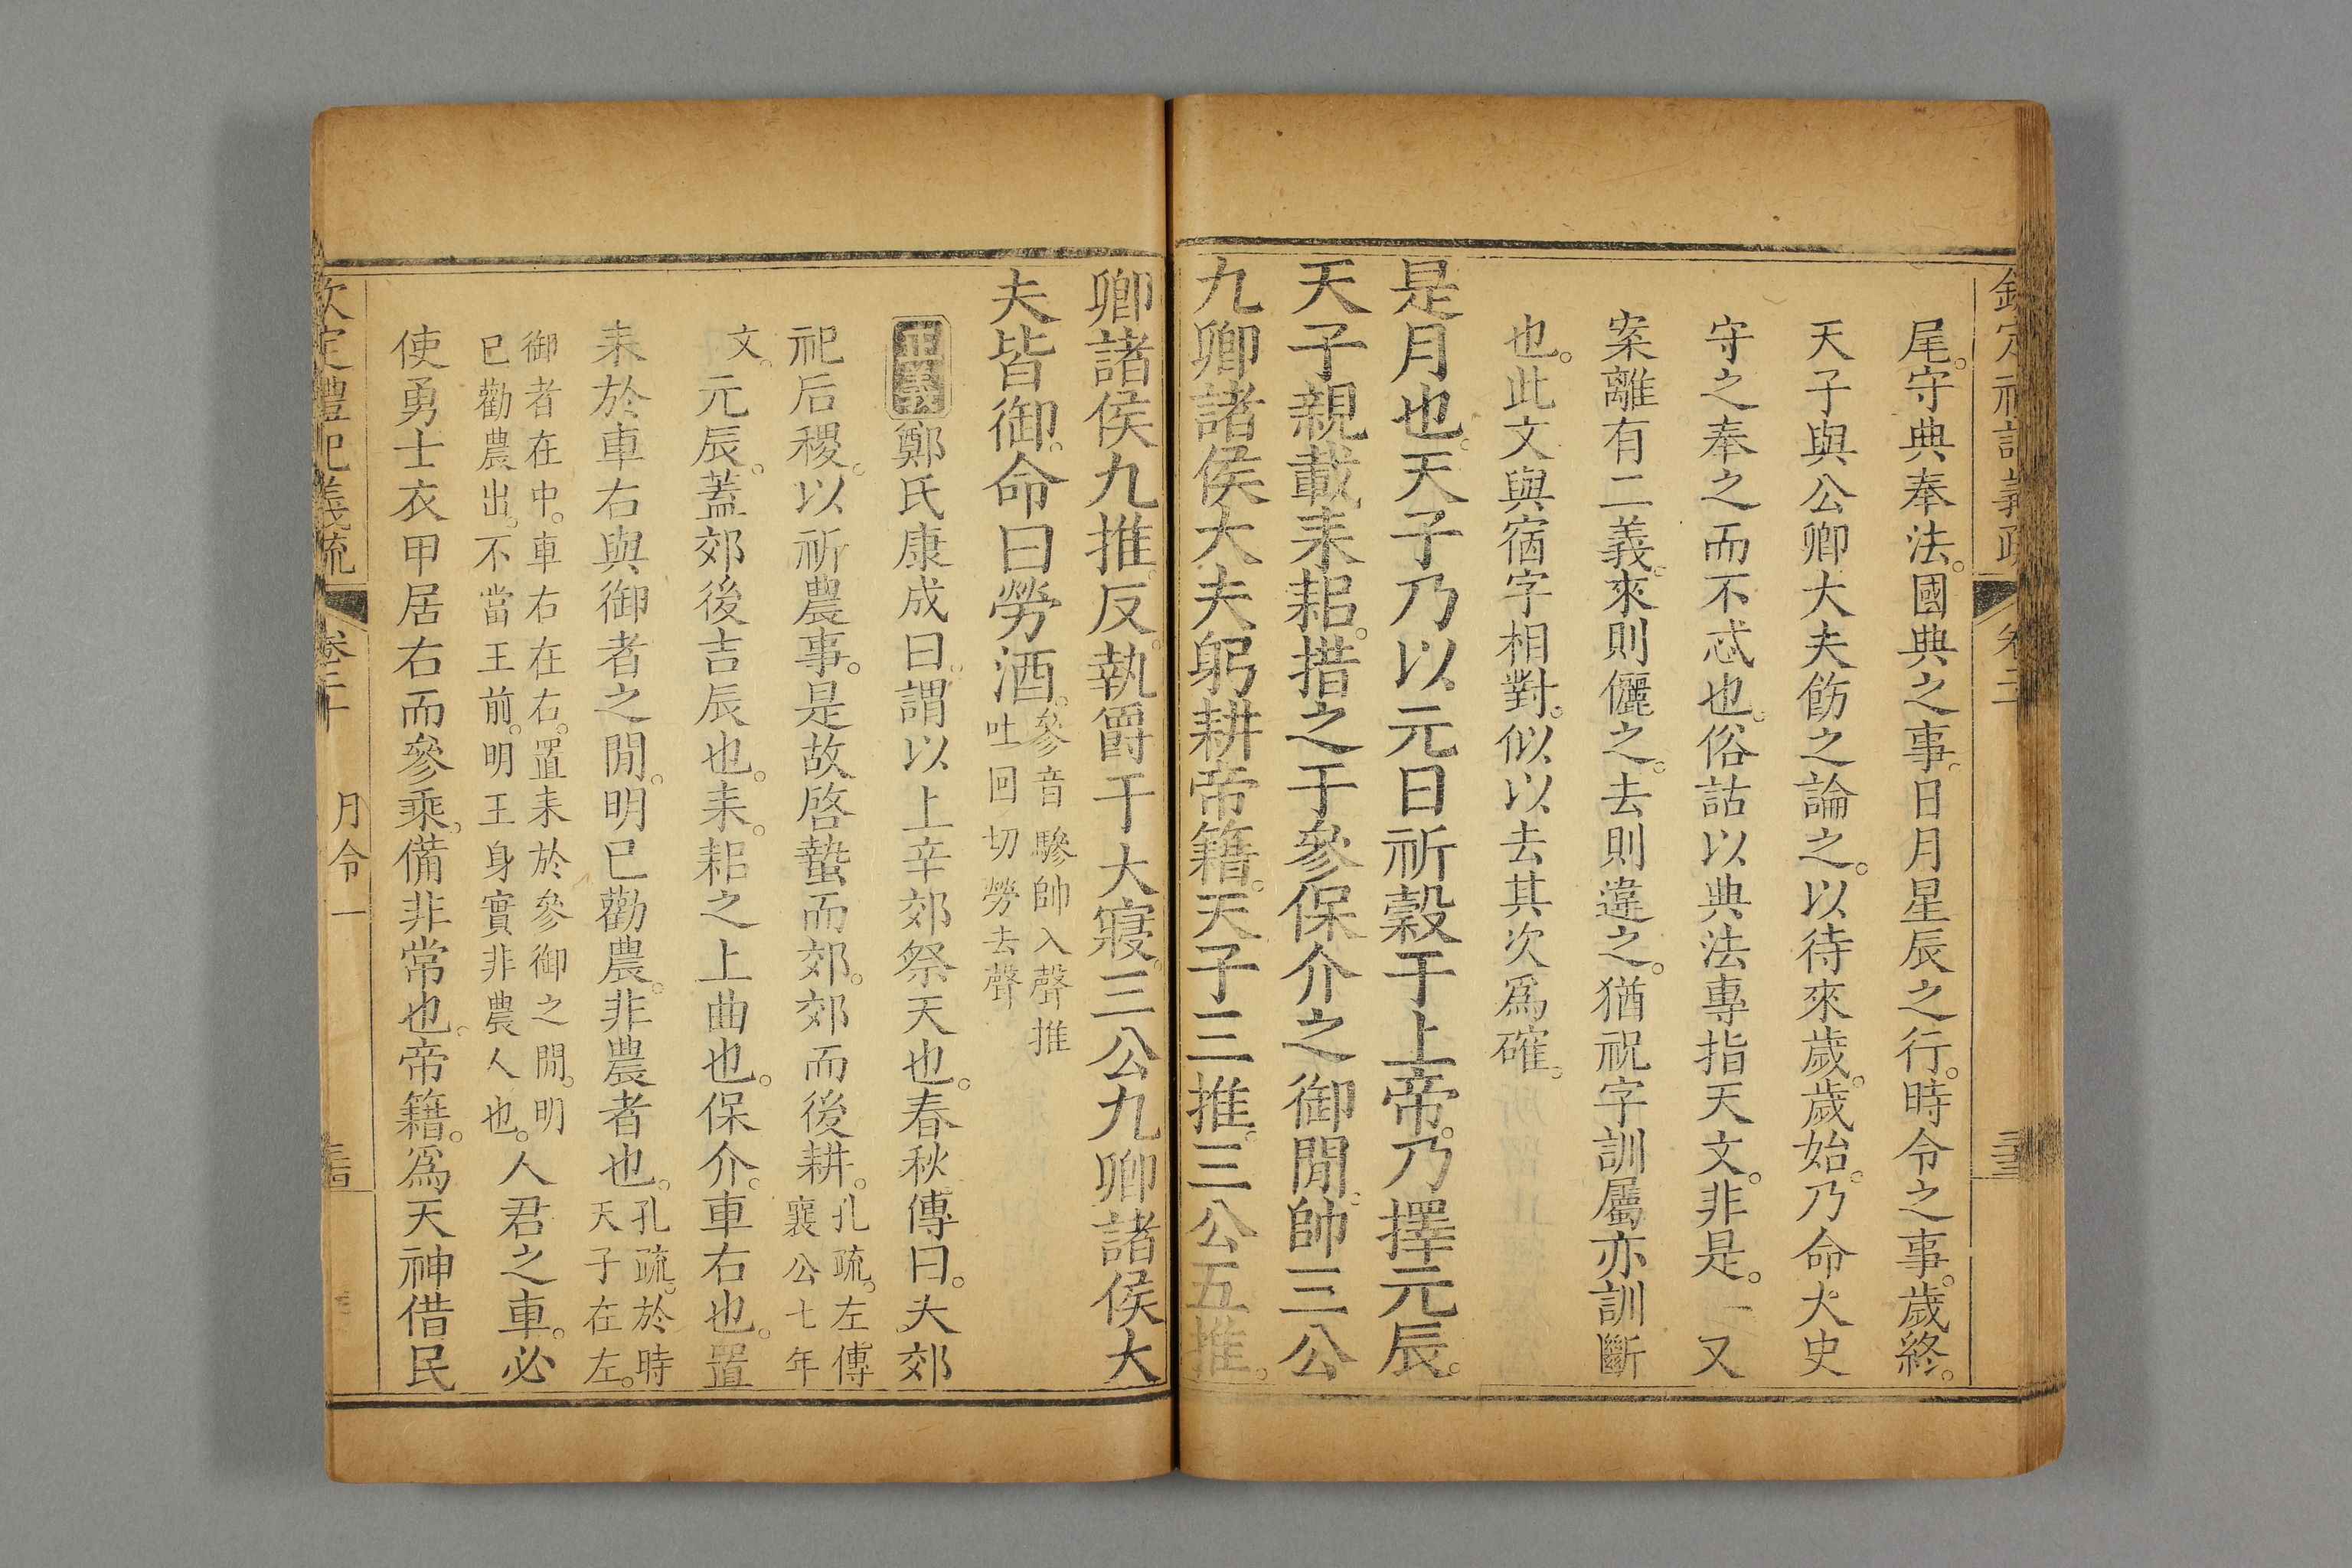 欽定禮記義疏 卷二十
尾。守典奉法。國典之事。日月星辰之行。時令之事。歲終。
天子與公卿大夫飭之論之。以待來歲。歲始。乃命大史
守之奉之而不忒也。俗詁以典法專指天文。非是。一又
案離有二義。來則儷之。去則違之。猶祝字訓屬亦訓斷
也。此文與宿字相對。似以去其次爲確。
是月也。天子乃以元日祈穀于上帝。乃擇元辰。
天子親載耒耜。措之于參保介之御閒。帥三公
九卿諸侯大夫躬耕帝籍。天子三推。三公五推。
卿諸侯九推。反。執爵于大寢。三公九卿諸侯大
夫皆御。命曰勞酒。參音驂帥入聲推
吐回切勞去聲
正義鄭氏康成曰。謂以上辛郊祭天也。春秋傳曰。夫郊
祀后稷。以祈農事。是故啓蟄而郊。郊而後耕。孔疏。左傳
襄公七年
文。元辰。蓋郊後吉辰也。耒。耜之上曲也。保介。車右也。置
耒於車右與御者之閒。明已勸農。非農者也。孔疏。於時
天子在左。
御者在中。車右在右。置耒於參御之閒。明
已勸農出。不當王前。明王身實非農人也。人君之車。必
使勇士衣甲居右而參乘。備非常也。帝籍。爲天神借民
欽定禮記義疏 卷二十 月令一